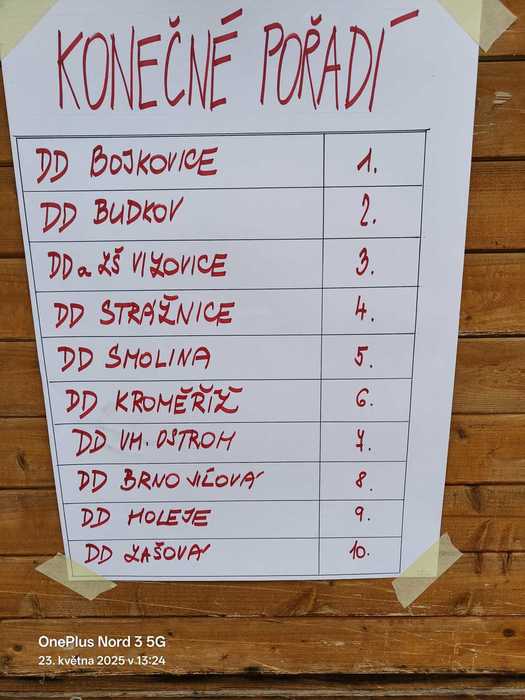 KONEČNÉ POŘADÍ
DD BOJKOVICE 1.
DD BUDKOV 2.
DD a ZŠ VIZOVICE 3.
DD STRÁŽNICE 4.
DD SMOLINA 5.
DD KROMĚŘÍŽ 6.
DD UH. OSTROH 7.
DD BRNO JÍLOVÁ 8.
DD HOLEJE 9.
DD ZAŠOVÁ 10.
OnePlus Nord 3 5G
23. května 2025 v 13:24